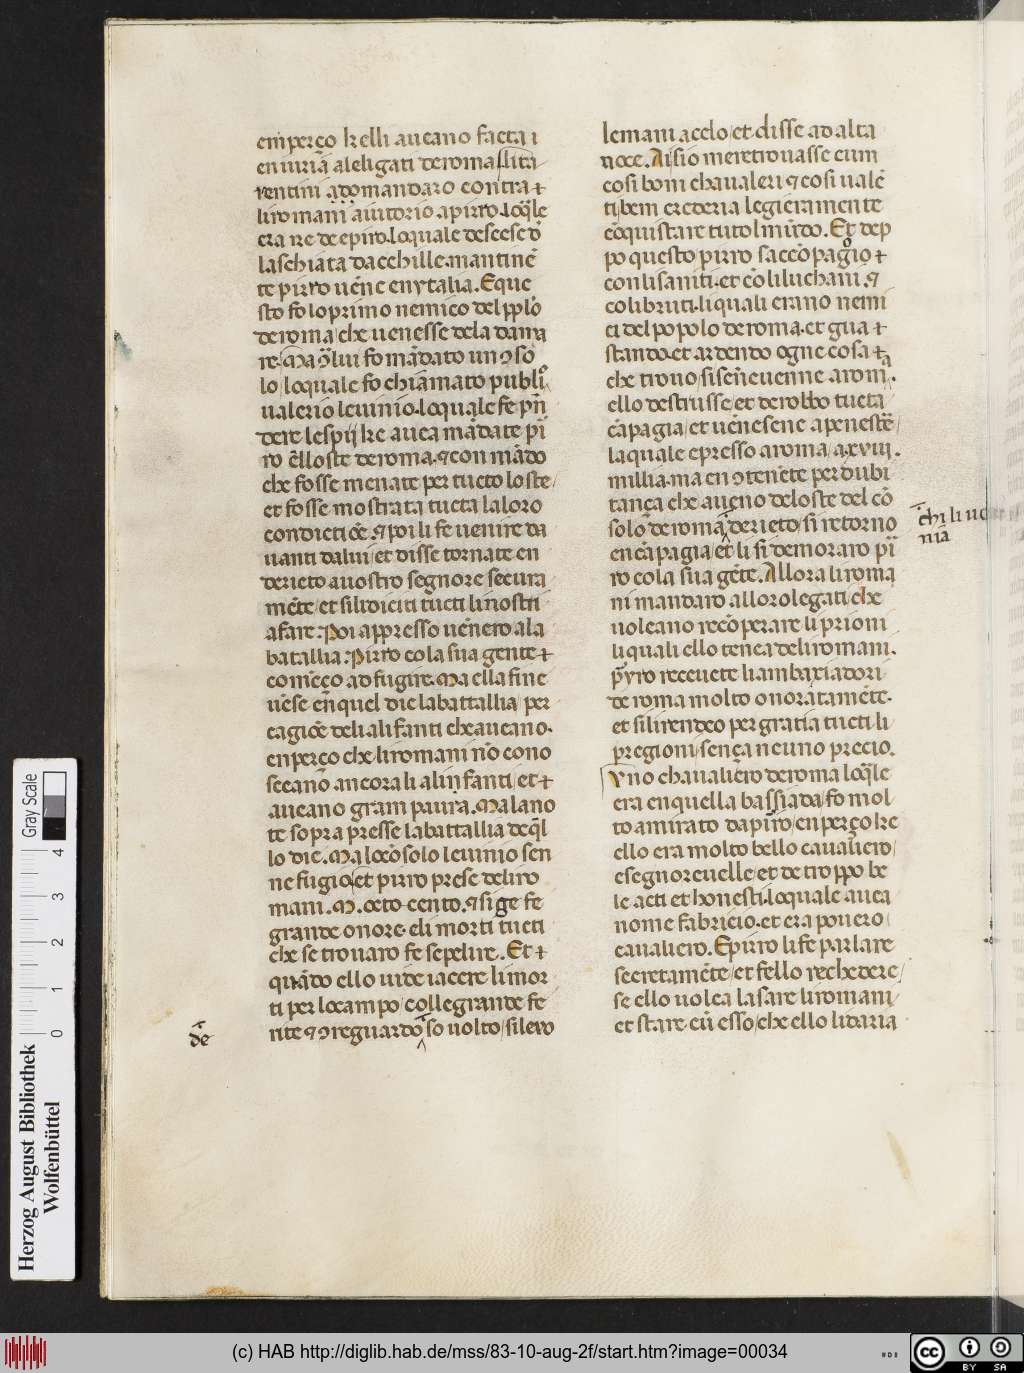 em perço kelli aueano facta i
en iuriā aleligati de roma/lita
rentini ādomandaro contra ⁊
li romani aiutorio apirro. loq̄le
era re de epiro. loquale descese d̄
la schiata dacchille. mantinē
te pirro uēne en ytalia. Eque
sto fo lo primo nemico del pplo
de roma/ che uenesse dela da ma
re. Ma ꝯ lui fo mādato un ꝯso
lo/ loquale fo chiāmato publio
ualerio leuinio. loquale fe pn̄
dere le spij ke auea mādate pi
ro ēlloste de roma. ⁊ con mādo
che fosse menate per tucto loste/
et fosse mostrata tucta la loro
condictiōe. ⁊ poi li fe uenire da
uanti da lui/ et disse tornate en
derieto auostro segnore secura
mēte/ et sili diciti tucti li nostri
afare. Poi appresso uēnero ala
batallia. Pirro co la sua gente ⁊
comēço ad fugire. Ma ella fine
uēse en quel die la battallia/ per
cagiōe deli alifanti che aueano.
en perço che li romani nō cono
sceano ancora li alinfanti/ et ⁊
aueano gram paura. Ma la no
te sopra presse la battallia de q̄l
lo die. Ma locōsolo leuinio sen
ne fugio/ et pirro prese deli ro
mani. M. octo cento. ⁊ si ge fe
grande onore. eli morti tucti
che se trouaro fe sepelire. Et ⁊
quādo ello uide iacere li mor
ti per lo campo/ colle grande fe
rite ⁊ ꝯ reguardo so uolto/ si leuo
de
le mani acelo/ et disse ad alta
uoce. Ai sio me retrouasse cum
cosi boni chaualeri ⁊ cosi ualē
ti/ bem crederia legieramente
cōquistare tuto l mūdo. Et dep
po questo pirro saccōpagio ⁊
con li saniti. et cō li luchani. ⁊
coli bruti. li quali erano nemi
ci del popolo de roma. et gua ⁊
stando. et ardendo ogne cosa ⁊
che trouo/ si sen̄ euenne a roma.
ello destrusse/ et derobbo tucta
cāpagia/ et uēnesene a peneste/
la quale epresso a roma/ a. xviij.
millia. ma en ꝯtenēte per dubi
tança che aueno deloste del cō
solo de roma/ derieto/ si retorno
en cāpagia/ et li si demoraro pi
ro co la sua gēte. Allora li roma
ni mandaro allor o legati/ che
uoleano recōperare li prioni
li quali ello tenea deli romani.
pyro receuete li ambaxiadori
de roma molto onoratamēte.
et sili rendeo per gratia tucti li
pregioni/ sença neuno precio.
Uno chaualiero de roma loq̄le
era en quella bassiada/ fo mol
to amirato da piro/ en perço ke
ello era molto bello cauaUero/
e segnoreuelle/ et de troppo be
le acti et honesti. loquale auea
nome fabricio. et era pouero
caualiero. E piro li fe parlare
secretamēte/ et fello rechedere/
se ello uolea lasare li romani/
et stare cū esso/ che ello li daria
chi li ue
nia
Gray Scale
0 1 2 3 4
Herzog August Bibliothek
Wolfenbüttel
(c) HAB http://diglib.hab.de/mss/83-10-aug-2f/start.htm?image=00034
cc BY SA